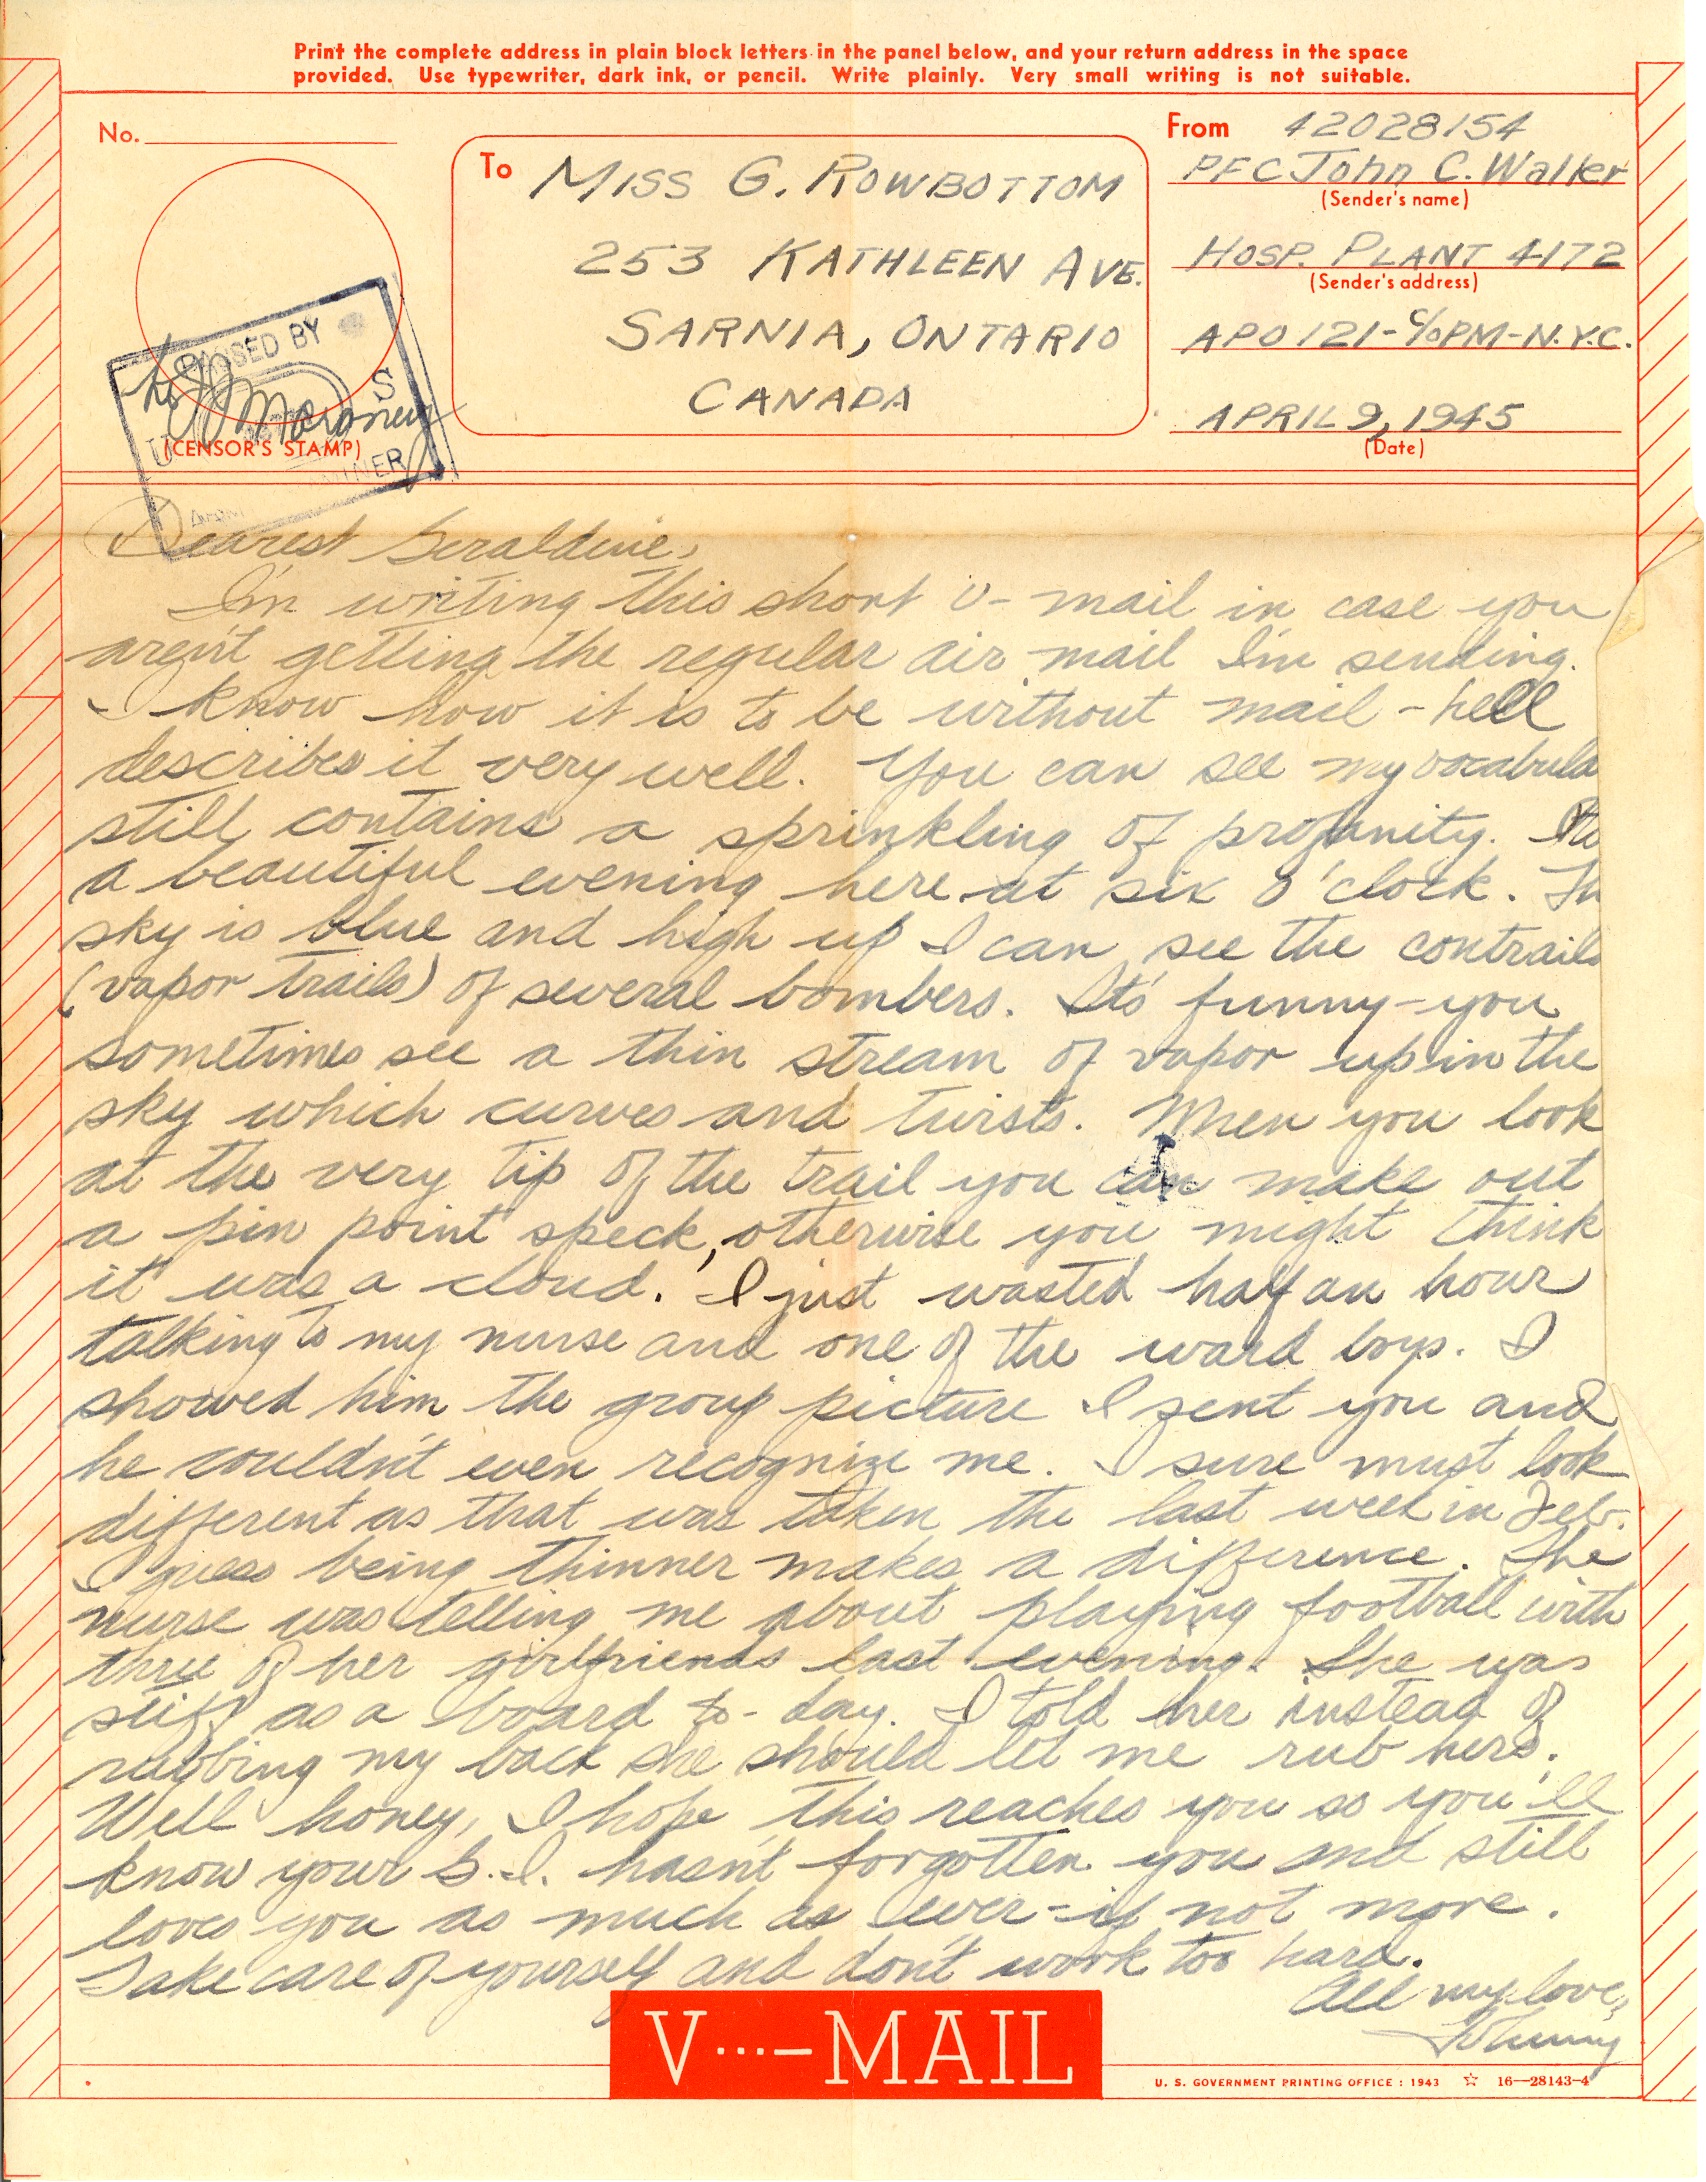 Print the complete address in plain block letters in the panel below, and your return address in the space
provided. Use typewriter, dark ink, or pencil. Write plainly. Very small writing is not suitable.
No.
To
MISS G. ROWBOTTOM
253 KATHLEEN AVE.
SARNIA, ONTARIO
CANADA
From 42028154
PFC John C. Walker
(Sender's name)
HOSP. PLANT 4172
(Sender's address)
APO 121-c/o PM-N.Y.C.
APRIL 9, 1945
(Date)
PASSED BY
(CENSOR'S STAMP)
Dearest Geraldine,
I'm writing this short V-mail in case you
aren't getting the regular air mail I'm sending.
I know how it is to be without mail - hell
describes it very well. You can see my vocabula
still contains a sprinkling of profanity. Its
a beautiful evening here at six o'clock. Th
sky is blue and high up I can see the contrails
(vapor trails) of several bombers. Its funny - you
sometimes see a thin stream of vapor up in the
sky which curves and twists. When you look
at the very tip of the trail you can make out
a pin point speck, otherwise you might think
it was a cloud. I just wasted half an hour
talking to my nurse and one of the ward boys. I
showed him the group picture I sent you and
he couldn't even recognize me. I sure must look
different as that was taken the last week in Feb.
I guess being thinner makes a difference. The
nurse was telling me about playing football with
three of her girlfriends last evening. She was
stiff as a board to-day. I told her instead of
rubbing my back she should let me rub hers.
Well honey, I hope this reaches you so you'll
know your G.I. hasn't forgotten you and still
loves you as much as ever - if not more.
Take care of yourself and don't work too hard.
All my love,
Johnny
V...—MAIL
U. S. GOVERNMENT PRINTING OFFICE : 1943 ☆ 16—28143-4